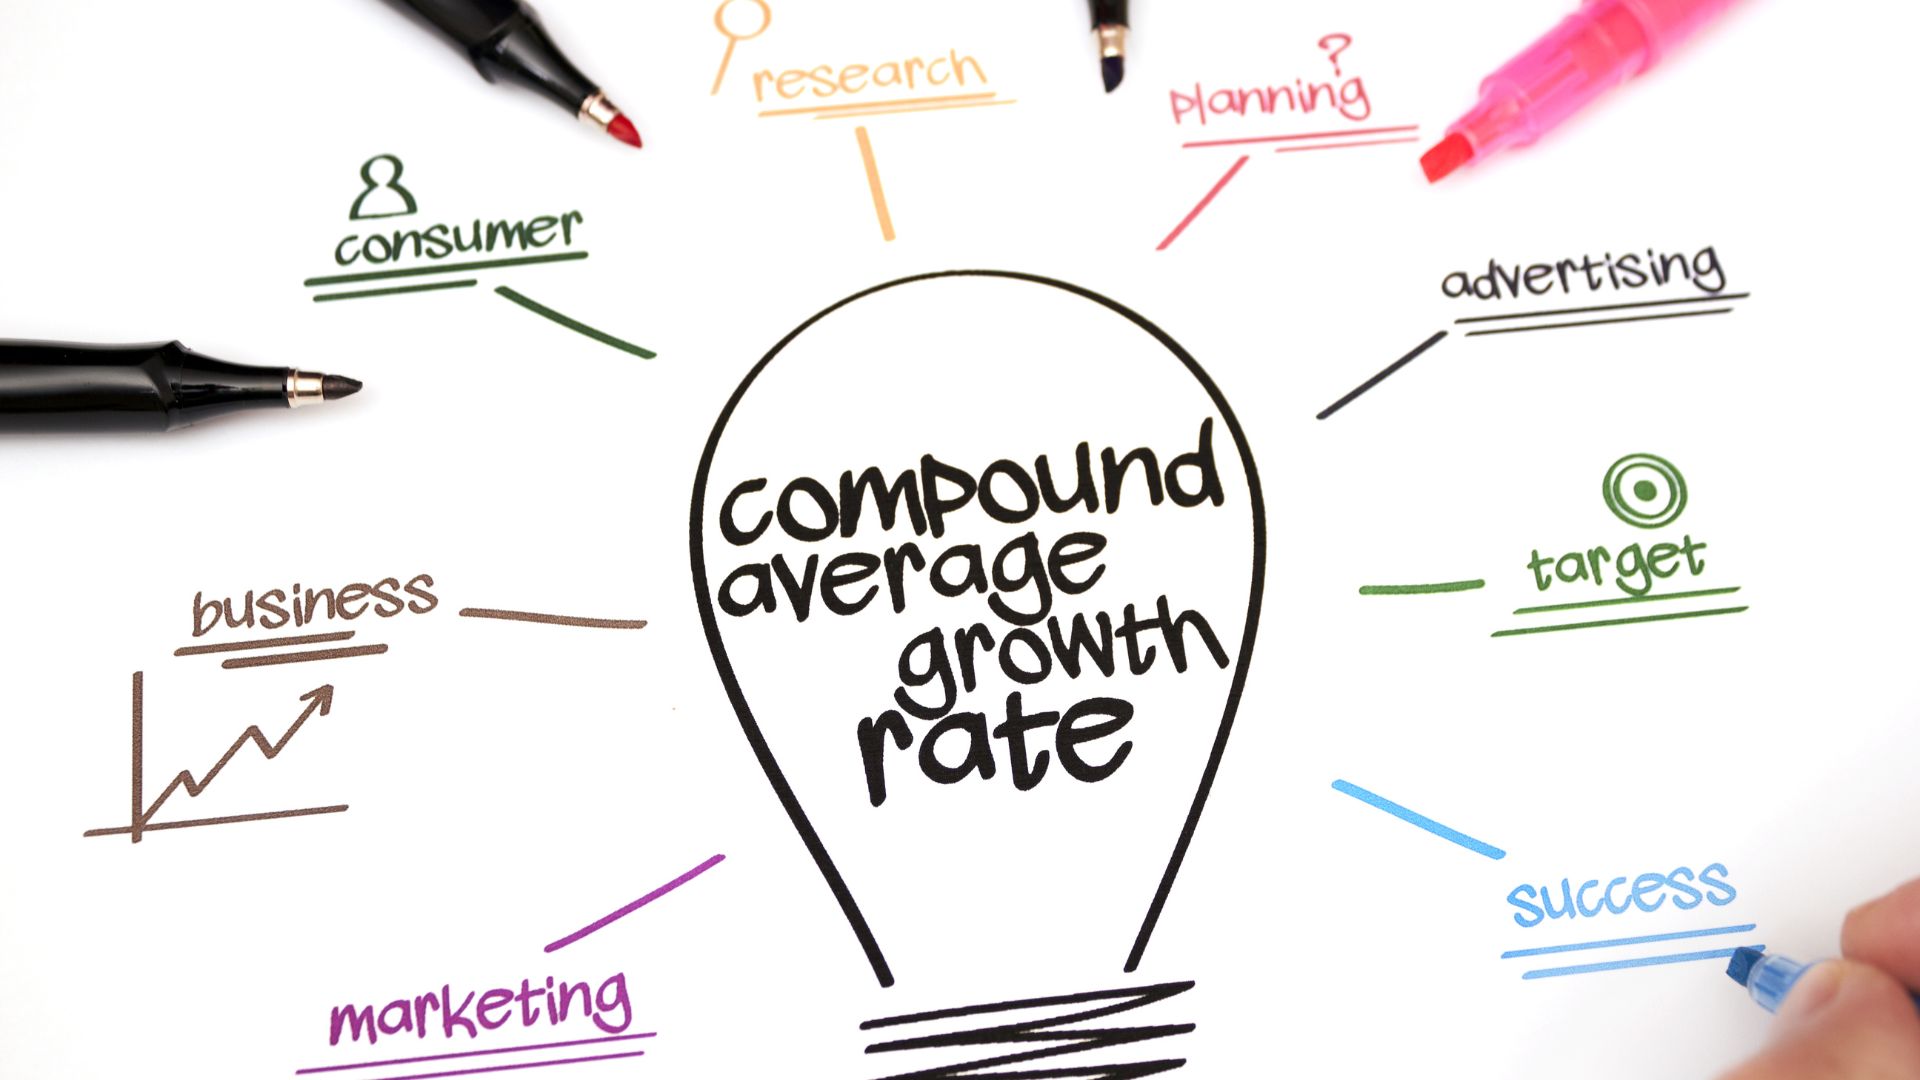 research
planning
?
consumer
advertising
compound
average
growth
rate
target
business
success
marketing